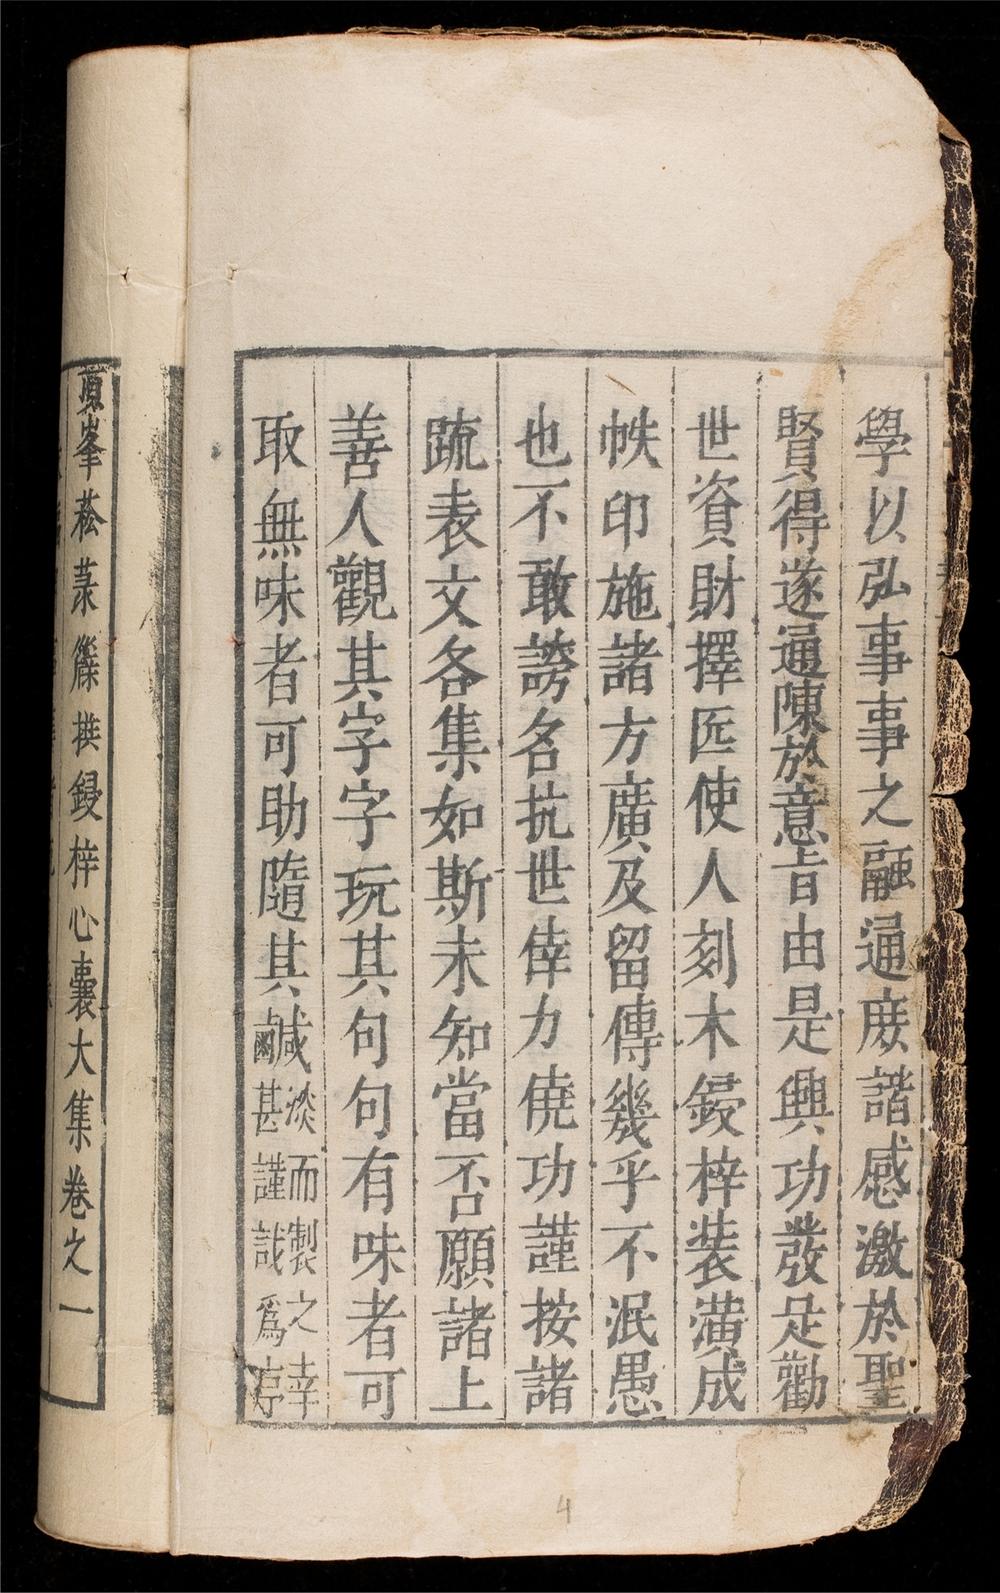 學以弘事事之融通庻諧感激於聖
賢得遂通陳於意旨由是興功發足勸
世資財擇匠使人刻木鋟梓装潢成
帙印施諸方廣及留傳幾乎不泯愚
也不敢誇名抗世倖力僥功謹按諸
䟽表文各集如斯未知當否願諸上
善人觀其字字玩其句句有味者可
取無味者可助隨其鹹淡而製之幸
甚謹誌爲序
峯菘菉
鋟梓心囊大集卷之一
4